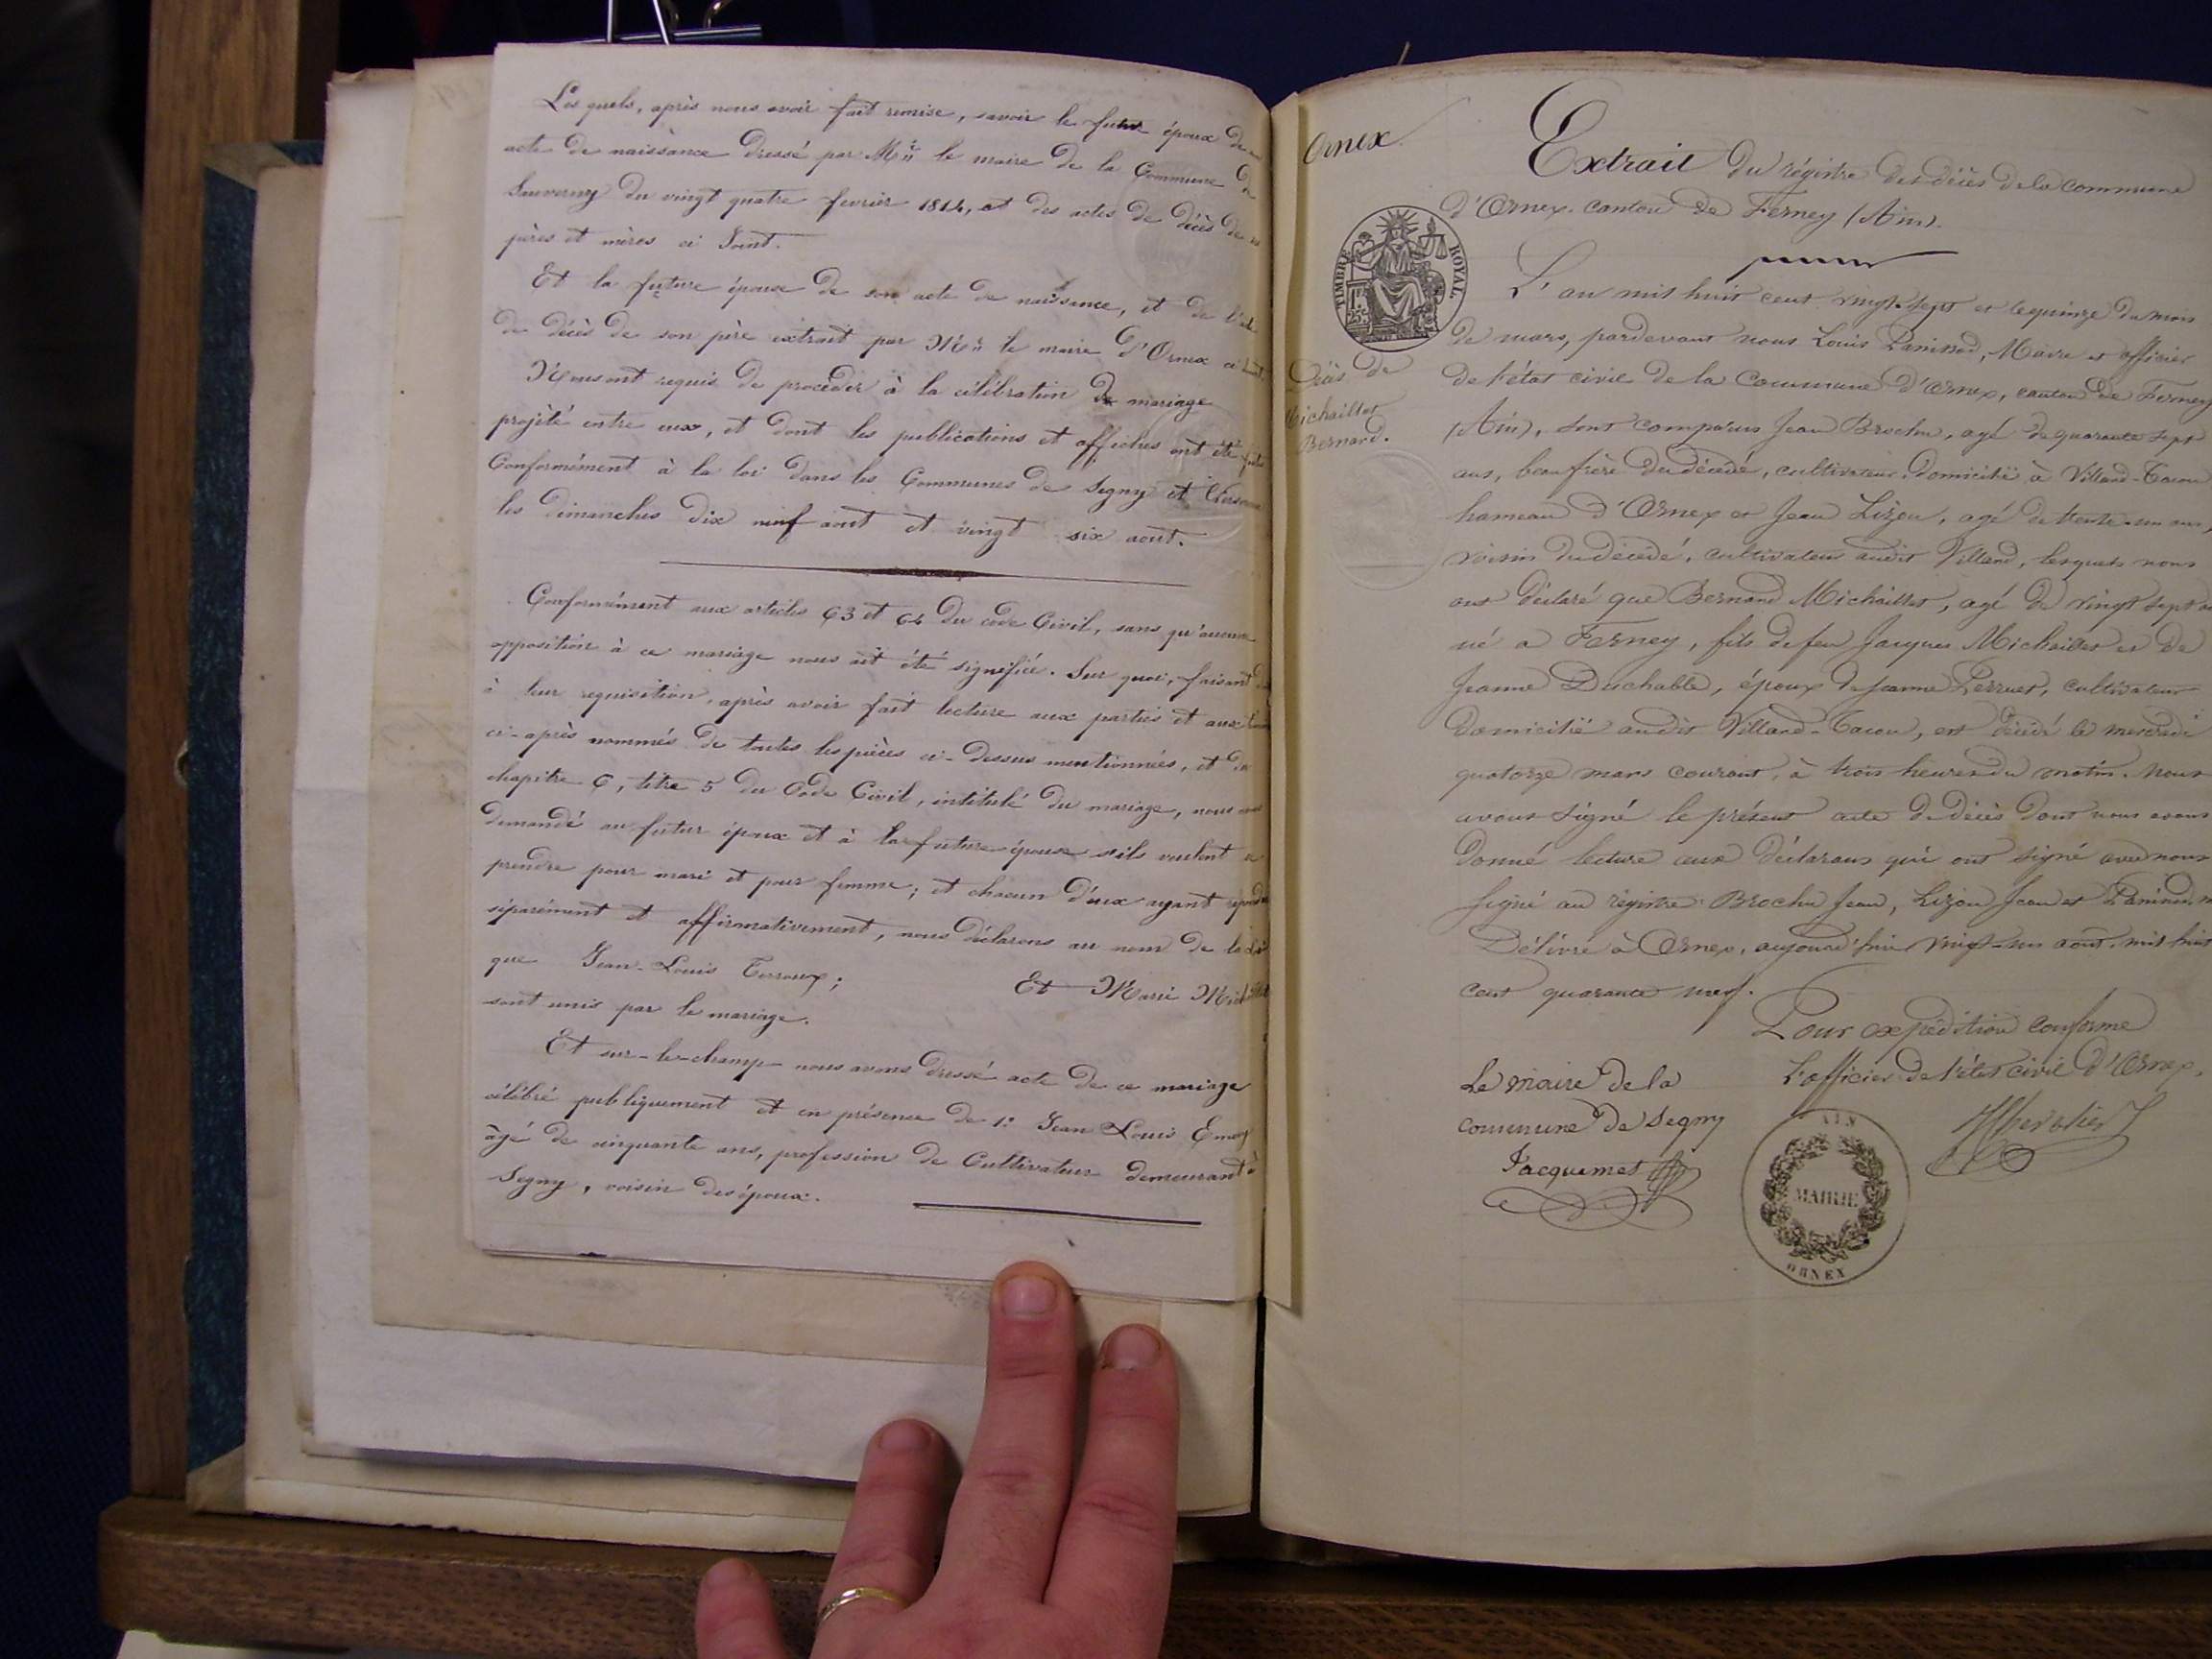 Les quels, après nous avoir fait remise, savoir le futur époux de
acte de naissance dressé par Mr le maire de la Commune de
Sauverny du vingt quatre fevrier 1814, et des actes de décès de
pères et mères ci Joint.
Et la future épouse de son acte de naissance, et de l'
de décès de son père extrait par Mr le maire d'Ornex ci
Nous ont requis de procéder à la célébration de mariage
projèté entre eux, et dont les publications et affiches ont été
Conformément à la loi dans les Communes de Segny et
les dimanches dix neuf aout et vingt six aout.
Conformément aux articles 63 et 64 du code Civil, sans qu'aucune
opposition à ce mariage nous ait été signifiée. Sur quoi, faisant
à leur requisition, après avoir fait lecture aux parties et aux
ci-après nommés de toutes les pièces ci-dessus mentionnées, et du
chapitre 6, titre 5 du Code Civil, intitulé du mariage, nous
demandé au futur époux et à la future épouse s'ils veulent
prendre pour mari et pour femme ; et chacun d'eux ayant
séparément et affirmativement, nous déclarons au nom de la
que Jean-Louis Terroux ; Et Marie
sont unis par le mariage.
Et sur-le-champ nous avons dressé acte de ce mariage
célébré publiquement et en présence de 1° Jean Louis
âgé de cinquante ans, profession de Cultivateur demeurant à
Segny, voisin des époux.
Ornex
Extrait du régistre des décès de la commune
d'Ornex canton de Ferney (Ain).
TIMBRE ROYAL
L'an mil huit cent vingt-sept et le quinze du mois
de mars, pardevant nous Louis Panissod, Maire et officier
Décès de
Michaillet
Bernard.
de l'état civil de la Commune d'Ornex, canton de Ferney
(Ain), sont comparus Jean Brochu, agé de quarante sept
ans, beaufrère du décédé, cultivateur domicilié à Villard-Tacon
hameau d'Ornex et Jean Lizon, agé de trente-un ans,
voisin du décédé, cultivateur audit Villard, lesquels nous
ont déclaré que Bernard Michaillet, agé de vingt sept
né a Ferney, fils de feu Jacques Michaillet et de
Jeanne Duchable, époux de Jeanne Perruet, cultivateur
domicilié audit Villard-Tacon, est décédé le mercredi
quatorze mars courant, à trois heures du matin. Nous
avons signé le présent acte de décès dont nous avons
donné lecture aux déclarans qui ont signé avec nous
Signé au régistre : Brochu Jean, Lizon Jean et Panissod,
Délivré à Ornex, aujourd'hui vingt-un aout mil huit
cent quarante neuf.
Pour expédition conforme
L'officier de l'état civil d'Ornex,
Le maire de la
commune de Segny
Jacquemet
AIN
MAIRIE
ORNEX